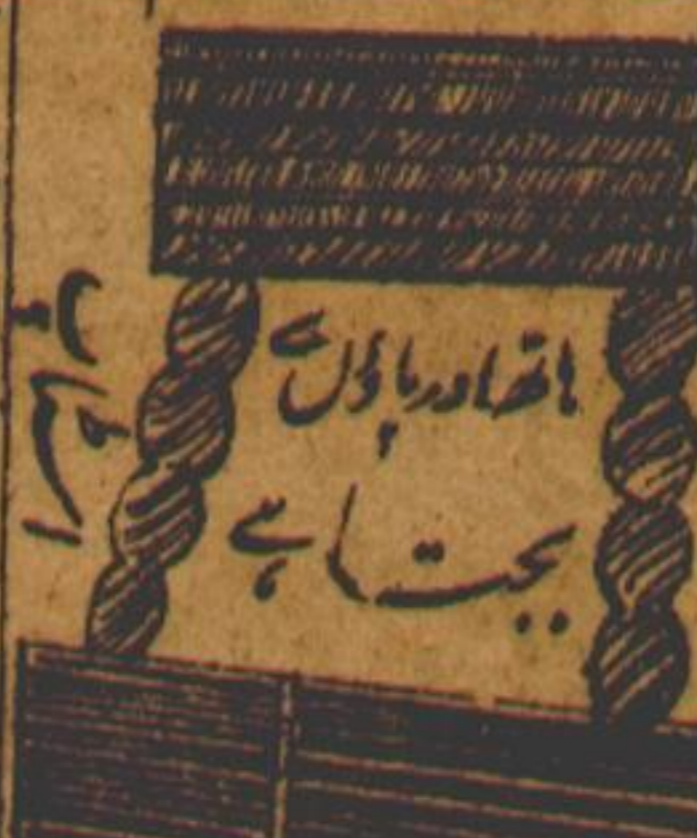 ہاتھ اور پاؤں سے
بجتا ہے